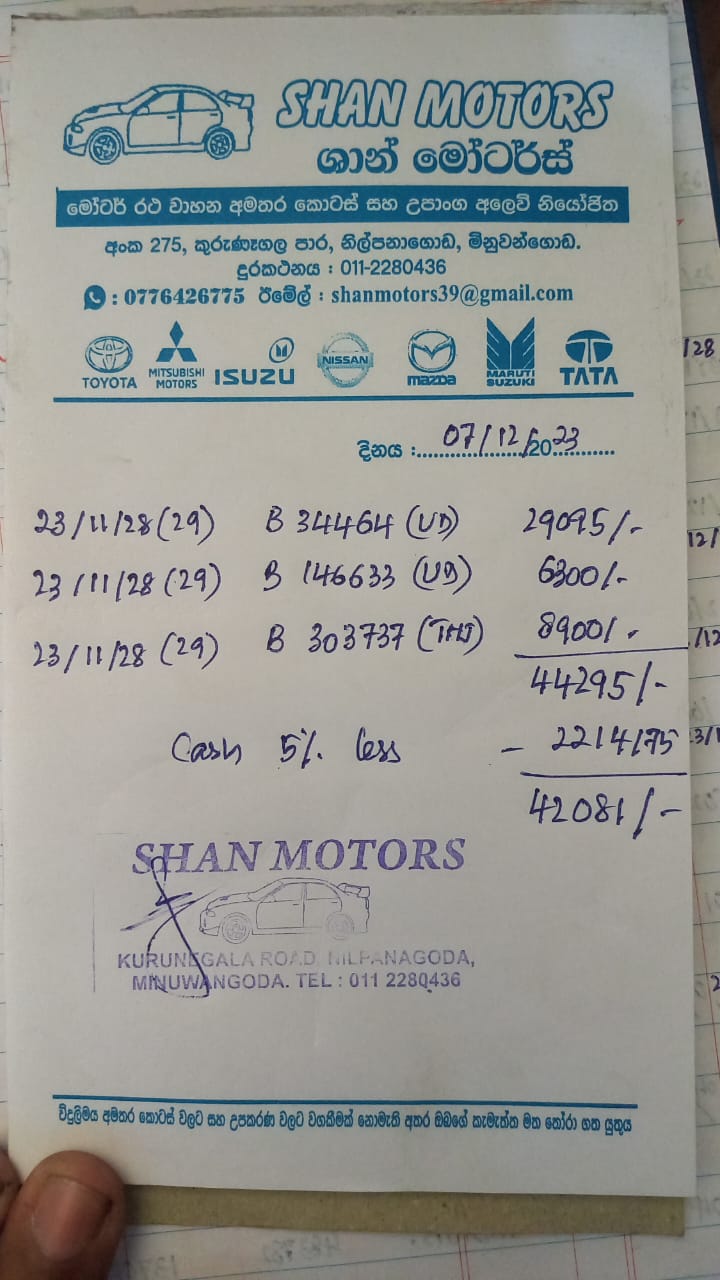 SHAN MOTORS
ශාන් මෝටර්ස්
මෝටර් රථ වාහන අමතර කොටස් සහ උපාංග අලෙවි නියෝජිත
අංක 275, කුරුණෑගල පාර, නිල්පනාගොඩ, මිනුවන්ගොඩ.
දුරකථනය : 011-2280436
: 0776426775 ඊමේල් : shanmotors39@gmail.com
TOYOTA MITSUBISHI MOTORS ISUZU NISSAN mazda MARUTI SUZUKI TATA
දිනය :....07/12/2023....
23/11/28 (29) B 34464 (UD) 29095/-
23/11/28 (29) B 146633 (UD) 6300/-
23/11/28 (29) B 303737 8900/-
44295/-
Cash 5% less - 2214/75
42081/-
SHAN MOTORS
KURUNEGALA ROAD, NILPANAGODA,
MINUWANGODA. TEL : 011 2280436
විදුලිමය අමතර කොටස් වලට සහ උපකරණ වලට වගකීමක් නොමැති අතර ඔබගේ කැමැත්ත මත තෝරා ගත යුතුය